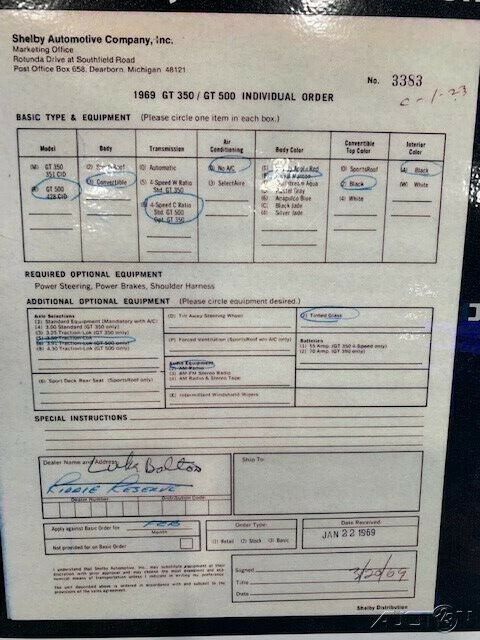 Shelby Automotive Company, Inc.
Marketing Office
Rotunda Drive at Southfield Road
Post Office Box 658, Dearborn, Michigan 48121
No. 3383
1969 GT 350 / GT 500 INDIVIDUAL ORDER
BASIC TYPE & EQUIPMENT (Please circle one item in each box.)
Model Body Transmission Air Conditioning Body Color Convertible Top Color Interior Color
(M) GT 350 351 CID
GT 500 428 CID
(2) SportsRoof
Convertible
(0) Automatic
(5) 4-Speed W Ratio Std. GT 350
4-Speed C Ratio Std. GT 500 Opt. GT 350
No A/C
(3) SelectAire
Red
Aqua
Pastel Gray
(6) Acapulco Blue
(C) Black Jade
(4) Silver Jade
(0) SportsRoof
Black
(4) White
(A) Black
(W) White
REQUIRED OPTIONAL EQUIPMENT
Power Steering, Power Brakes, Shoulder Harness
ADDITIONAL OPTIONAL EQUIPMENT (Please circle equipment desired.)
Axle Selections
(2) Standard Equipment (Mandatory with A/C)
(4) 3.00 Standard (GT 350 only)
(3) 3.25 Traction-Lok (GT 350 only)
(5) 3.50 Traction-Lok
3.91 Traction-Lok (GT 500 only)
(8) 4.30 Traction-Lok (GT 500 only)
(6) Sport Deck Rear Seat (SportsRoof only)
(D) Tilt Away Steering Wheel
(P) Forced Ventilation (SportsRoof w/o A/C only)
Audio Equipment
AM Radio
(3) AM-FM Stereo Radio
(4) AM Radio & Stereo Tape
(X) Intermittent Windshield Wipers
Tinted Glass
Batteries
(1) 55 Amp. (GT 350 4-Speed only)
(2) 70 Amp. (GT 350 only)
SPECIAL INSTRUCTIONS
Dealer Name and Address Luke Bolton
KIDDIE RESERVE
Dealer Number Distribution Code
Ship To:
Apply against Basic Order for FEB
Month
Not provided for on Basic Order
Order Type:
(1) Retail (2) Stock (3) Basic
Date Received
JAN 22 1969
I understand that Shelby Automotive, Inc. may substitute equipment at their
discretion with prior approval and may choose the most expedient and economical means of transportation unless I indicate in writing my preference.
The unit described above is ordered in accordance with and subject to the
provisions of the sales agreement.
Signed
Title
Date
Shelby Distribution